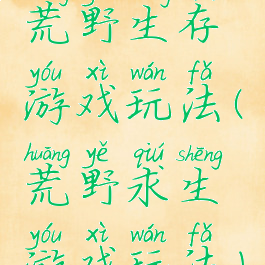 荒野生存
yóu xì wán fǎ
游戏玩法(
huāng yě qiú shēng
荒野求生
yóu xì wán fǎ
游戏玩法)